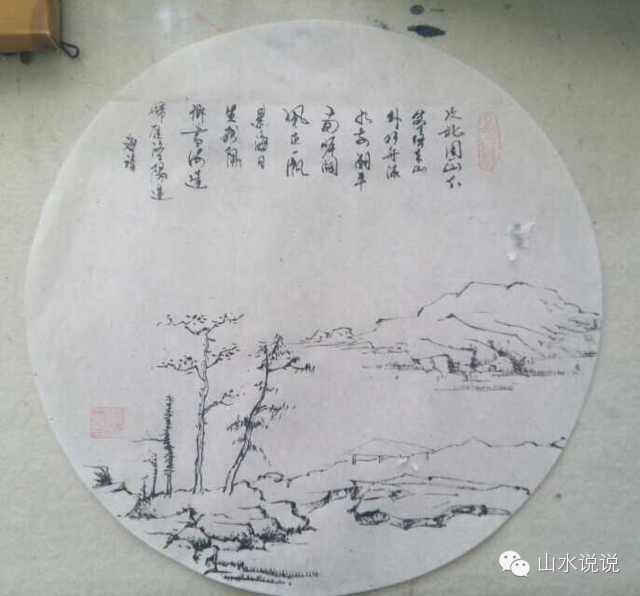 次北固山下
客路青山
外行舟绿
水前潮平
两岸阔
风正一帆
悬海日
生残
乡书何达
归雁洛阳边
山水说说